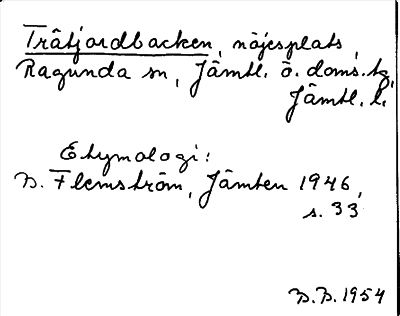 Tråtjärdbacken, nöjesplats,
Ragunda sn, Jämtl. ö. doms.tg,
Jämtl. l.
Etymologi:
B. Flemström, Jämten 1946,
s. 33
B.B. 1954